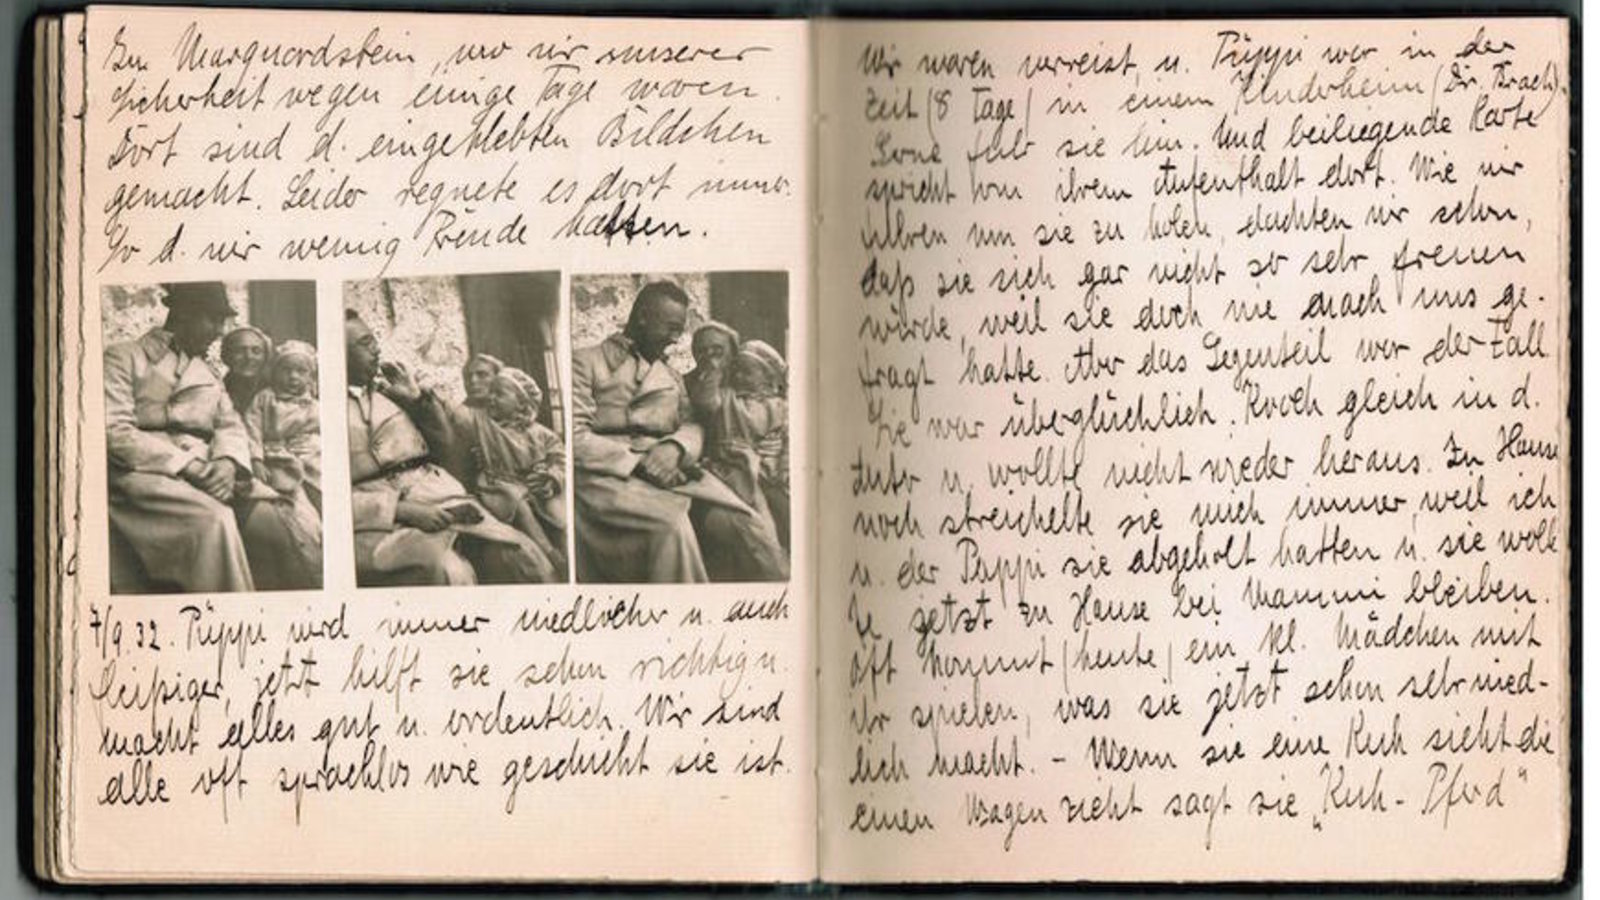 In Marquardstein, wo wir unserer
Sicherheit wegen einige Tage waren.
Dort sind d. eingeklebten Bildchen
gemacht. Leider regnete es dort immer.
So d. wir wenig Freude hatten.
7/9.32. Püppi wird immer niedlicher u. auch
fleißiger, jetzt hilft sie schon richtig u.
macht alles gut u. ordentlich. Wir sind
alle oft sprachlos wie geschickt sie ist.
Wir waren verreist, u. Püppi war in der
Zeit (8 Tage) in einem Kinderheim (Dr. Trach).
sie hin. Und beiliegende Karte
spricht von ihrem Aufenthalt dort. Wie wir
fuhren um sie zu holen, dachten wir schon,
daß sie sich gar nicht so sehr freuen
würde, weil sie doch nie nach uns ge-
fragt hatte. Aber das Gegenteil war der Fall.
Sie war überglücklich. Kroch gleich in d.
Auto u. wollte nicht wieder heraus. Zu Hause
noch streichelte sie mich immer, weil ich
u. der Pappi sie abgeholt hatten u. sie wollte
jetzt zu Hause bei Mammi bleiben.
Oft kommt (heute) ein kl. Mädchen mit
ihr spielen, was sie jetzt schon sehr nied-
lich macht. - Wenn sie eine Kuh sieht die
einen Wagen zieht sagt sie „Kuh - Pferd"